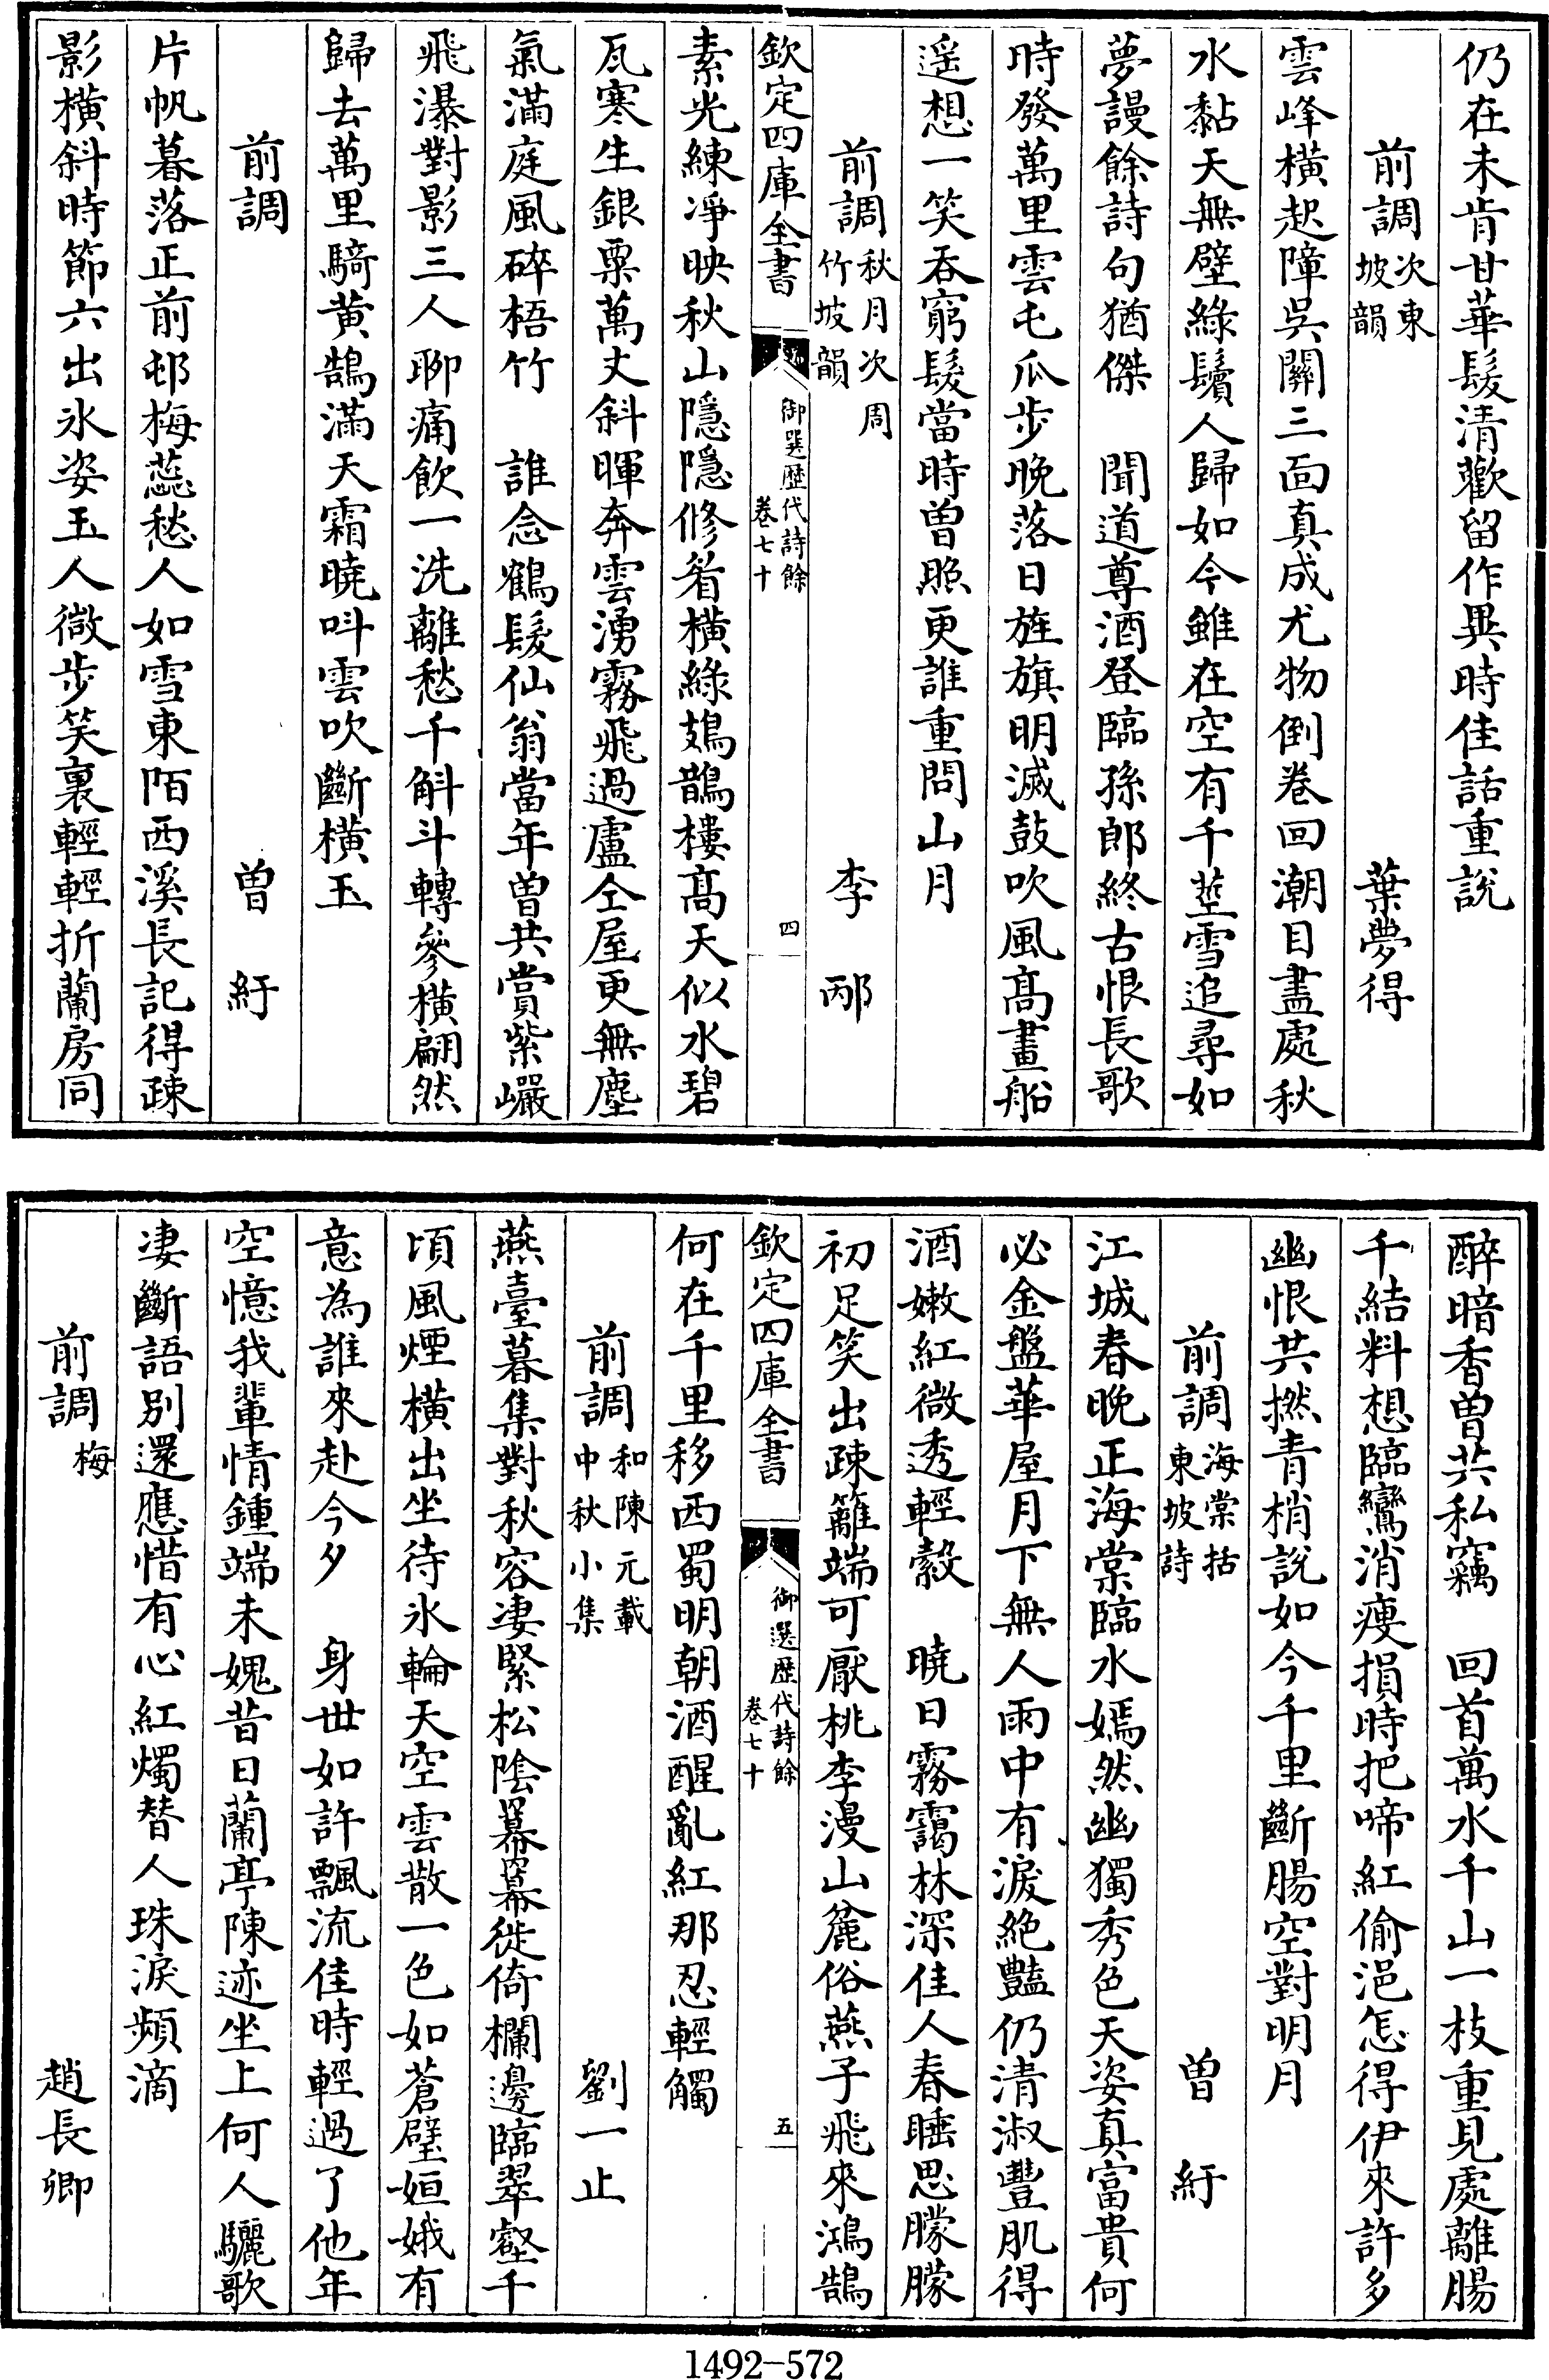 仍在未肯甘華髮清歡留作異時佳話重說
前調次東坡韻 葉夢得
雲峰橫起障吳關三面真成尤物倒卷回潮目盡處秋
水黏天無壁綠鬢人歸如今雖在空有千莖雪追尋如
夢謾餘詩句猶傑 聞道尊酒登臨孫郎終古恨長歌
時發萬里雲屯瓜步晚落日旌旗明滅鼓吹風高畫船
遥想一笑吞窮髮當時曾照更誰重問山月
前調秋月次周竹坡韻 李邴
欽定四庫全書 御選歷代詩餘卷七十 四
素光練凈映秋山隱隱修眉橫綠鳷鵲樓高天似水碧
瓦寒生銀粟萬丈斜暉奔雲湧霧飛過盧仝屋更無塵
氣滿庭風碎梧竹 誰念鶴髮仙翁當年曾共賞紫巖
飛瀑對影三人聊痛飲一洗離愁千斛斗轉參橫翩然
歸去萬里騎黃鵠滿天霜曉呌雲吹斷橫玉
前調 曾紆
片帆暮落正前邨梅蕊愁人如雪東陌西溪長記得疎
影橫斜時節六出氷姿玉人微步笑裏輕輕折蘭房同
醉暗香曾共私竊 回首萬水千山一枝重見處離腸
千結料想臨鸞消瘦損時把啼紅偷浥怎得伊來許多
幽恨共撚青梢說如今千里斷腸空對明月
前調海棠括東坡詩 曾紆
江城春晚正海棠臨水嫣然幽獨秀色天姿真富貴何
必金盤華屋月下無人雨中有淚絶豔仍清淑豐肌得
酒嫩紅微透輕縠 曉日霧靄林深佳人春睡思朦朦
初足笑出疎籬端可厭桃李漫山麄俗燕子飛來鴻鵠
欽定四庫全書 御選歷代詩餘卷七十 五
何在千里移西蜀明朝酒醒亂紅那忍輕觸
前調和陳元載中秋小集 劉一止
燕臺暮集對秋容淒緊松陰羃羃徙倚欄邊臨翠壑千
頃風煙橫出坐待氷輪天空雲散一色如蒼璧姮娥有
意為誰來赴今夕 身世如許飄流佳時輕過了他年
空憶我輩情鍾端未媿昔日蘭亭陳迹坐上何人驪歌
淒斷語別還應惜有心紅燭替人珠淚頻滴
前調梅 趙長卿
1492-572